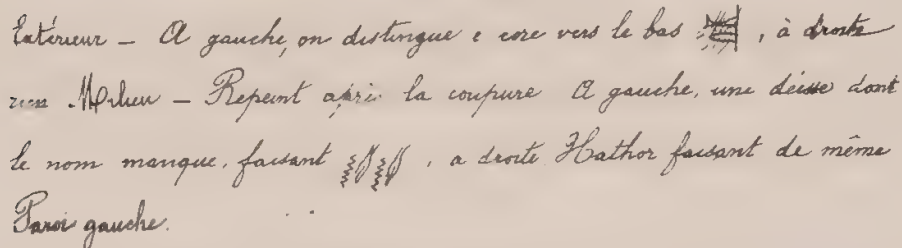 Extérieur – A gauche, on distingue e core vers le bas , à droite
rien Milieu – Repeint après la coupure A gauche, une déesse dont
le nom manque, faisant , a droite Hathor faisant de même
Paroi gauche.